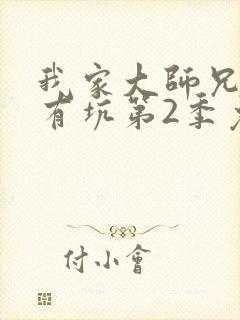 我家大師兄
有坑第2季
付小會